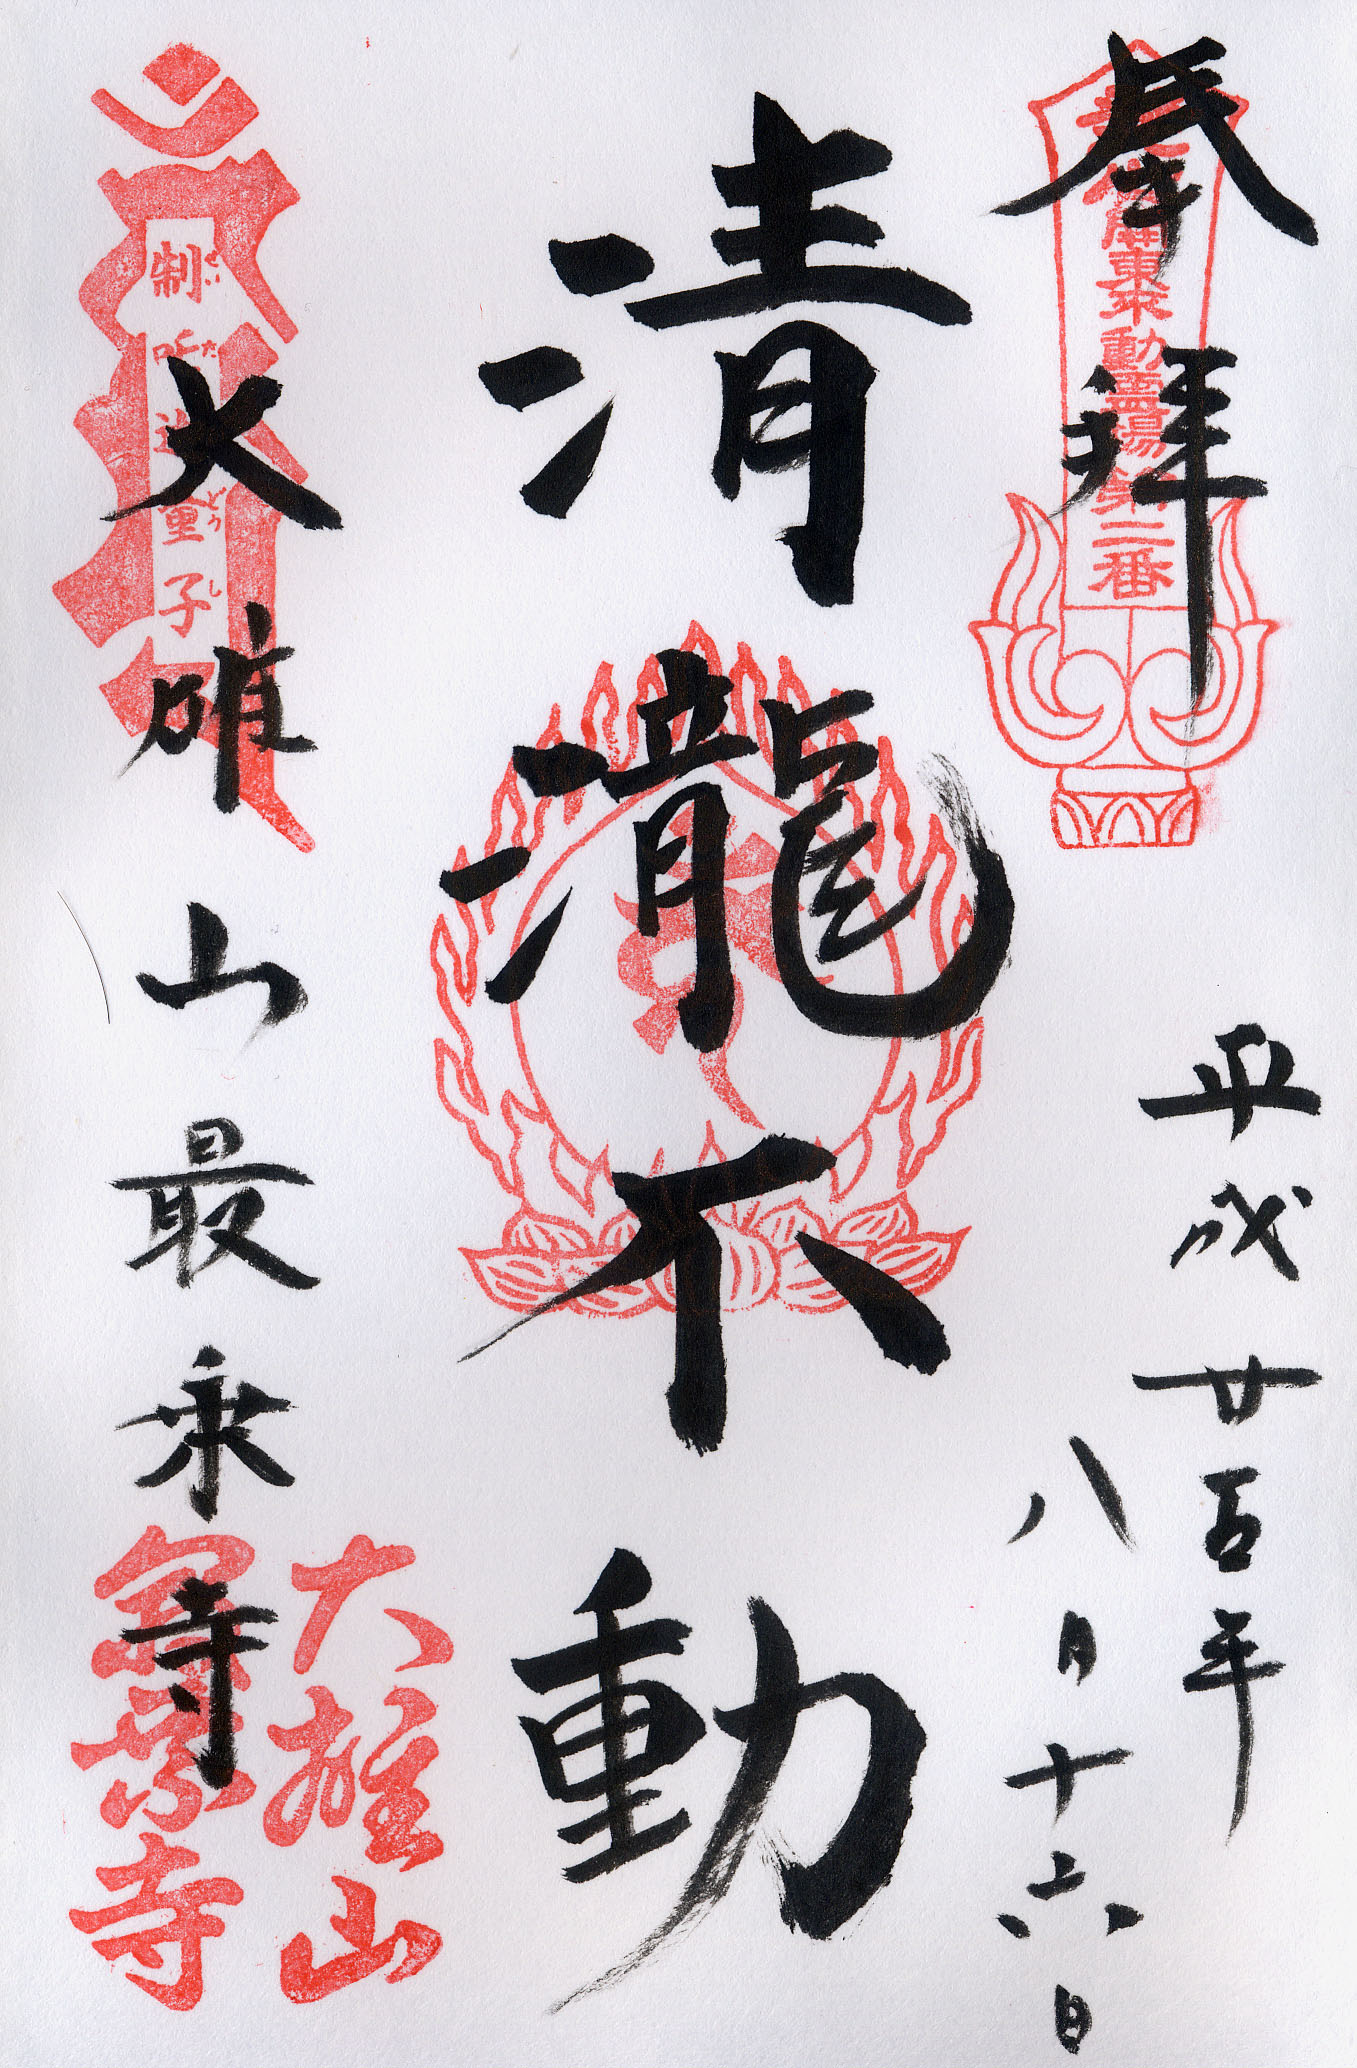 奉拝
関東不動霊場第二番
平成廿五年
八月十六日
清瀧不動
制吒迦童子
せいたどうし
大雄山最乗寺
大雄山
最乗寺